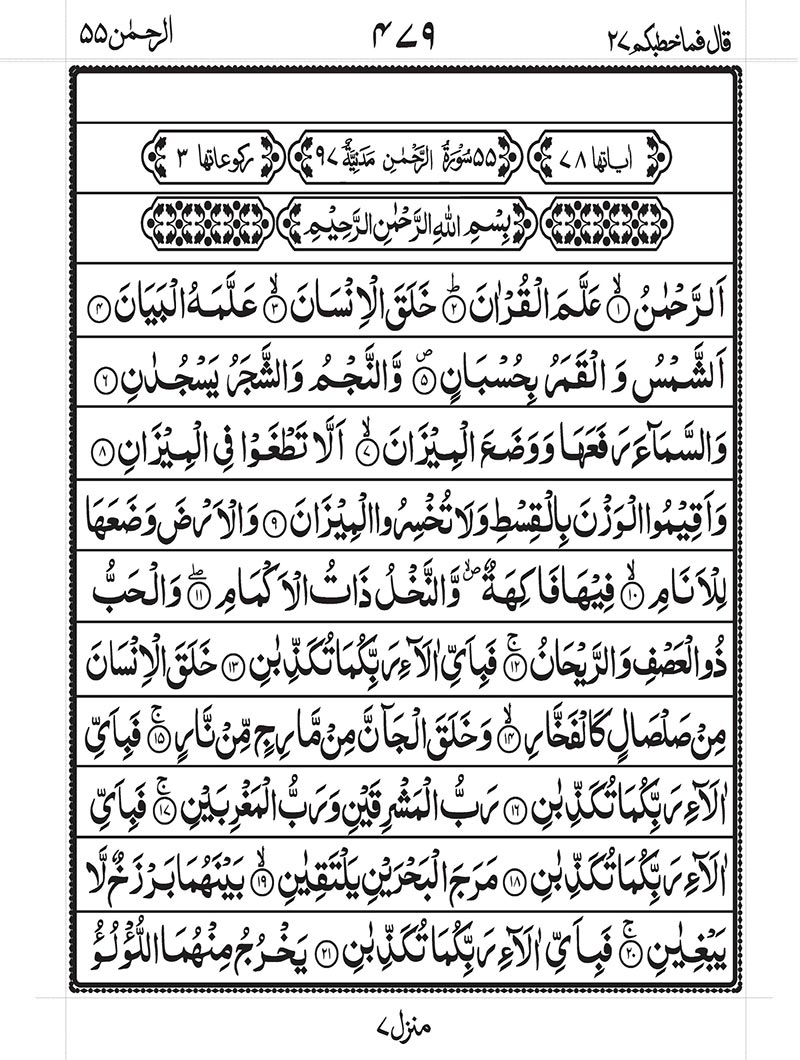 قال فما خطبكم ۲۷ ۴۷۹ الرحمٰن ۵۵
اٰیاتها ۷۸ ۵۵ سُوْرَةُ الرَّحْمٰنِ مَدَنِيَّةٌ ۹۷ رکوعاتها ۳
بِسْمِ اللّٰهِ الرَّحْمٰنِ الرَّحِيْمِ
اَلرَّحْمٰنُ ۙ‏﴿۱﴾ عَلَّمَ الْقُرْاٰنَ ؕ‏﴿۲﴾ خَلَقَ الْاِنْسَانَ ۙ‏﴿۳﴾ عَلَّمَهُ الْبَيَانَ ﴿۴﴾
اَلشَّمْسُ وَ الْقَمَرُ بِحُسْبَانٍ ۪﴿۵﴾ وَّالنَّجْمُ وَالشَّجَرُ يَسْجُدٰنِ ﴿۶﴾
وَالسَّمَآءَ رَفَعَهَا وَوَضَعَ الْمِيْزَانَ ۙ﴿۷﴾ اَلَّا تَطْغَوْا فِى الْمِيْزَانِ ﴿۸﴾
وَاَقِيْمُوا الْوَزْنَ بِالْقِسْطِ وَلَا تُخْسِرُوا الْمِيْزَانَ ﴿۹﴾ وَالْاَرْضَ وَضَعَهَا
لِلْاَنَامِ ۙ﴿۱۰﴾ فِيْهَا فَاكِهَةٌ ۪ۙ وَّالنَّخْلُ ذَاتُ الْاَكْمَامِ ۖ﴿۱۱﴾ وَالْحَبُّ
ذُو الْعَصْفِ وَالرَّيْحَانُ ۚ﴿۱۲﴾ فَبِاَىِّ اٰلَآءِ رَبِّكُمَا تُكَذِّبٰنِ ﴿۱۳﴾ خَلَقَ الْاِنْسَانَ
مِنْ صَلْصَالٍ كَالْفَخَّارِ ۙ﴿۱۴﴾ وَخَلَقَ الْجَآنَّ مِنْ مَّارِجٍ مِّنْ نَّارٍ ۚ﴿۱۵﴾ فَبِاَىِّ
اٰلَآءِ رَبِّكُمَا تُكَذِّبٰنِ ﴿۱۶﴾ رَبُّ الْمَشْرِقَيْنِ وَرَبُّ الْمَغْرِبَيْنِ ۚ﴿۱۷﴾ فَبِاَىِّ
اٰلَآءِ رَبِّكُمَا تُكَذِّبٰنِ ﴿۱۸﴾ مَرَجَ الْبَحْرَيْنِ يَلْتَقِيٰنِ ۙ﴿۱۹﴾ بَيْنَهُمَا بَرْزَخٌ لَّا
يَبْغِيٰنِ ۚ﴿۲۰﴾ فَبِاَىِّ اٰلَآءِ رَبِّكُمَا تُكَذِّبٰنِ ﴿۲۱﴾ يَخْرُجُ مِنْهُمَا اللُّؤْلُؤُ
منزل ۷